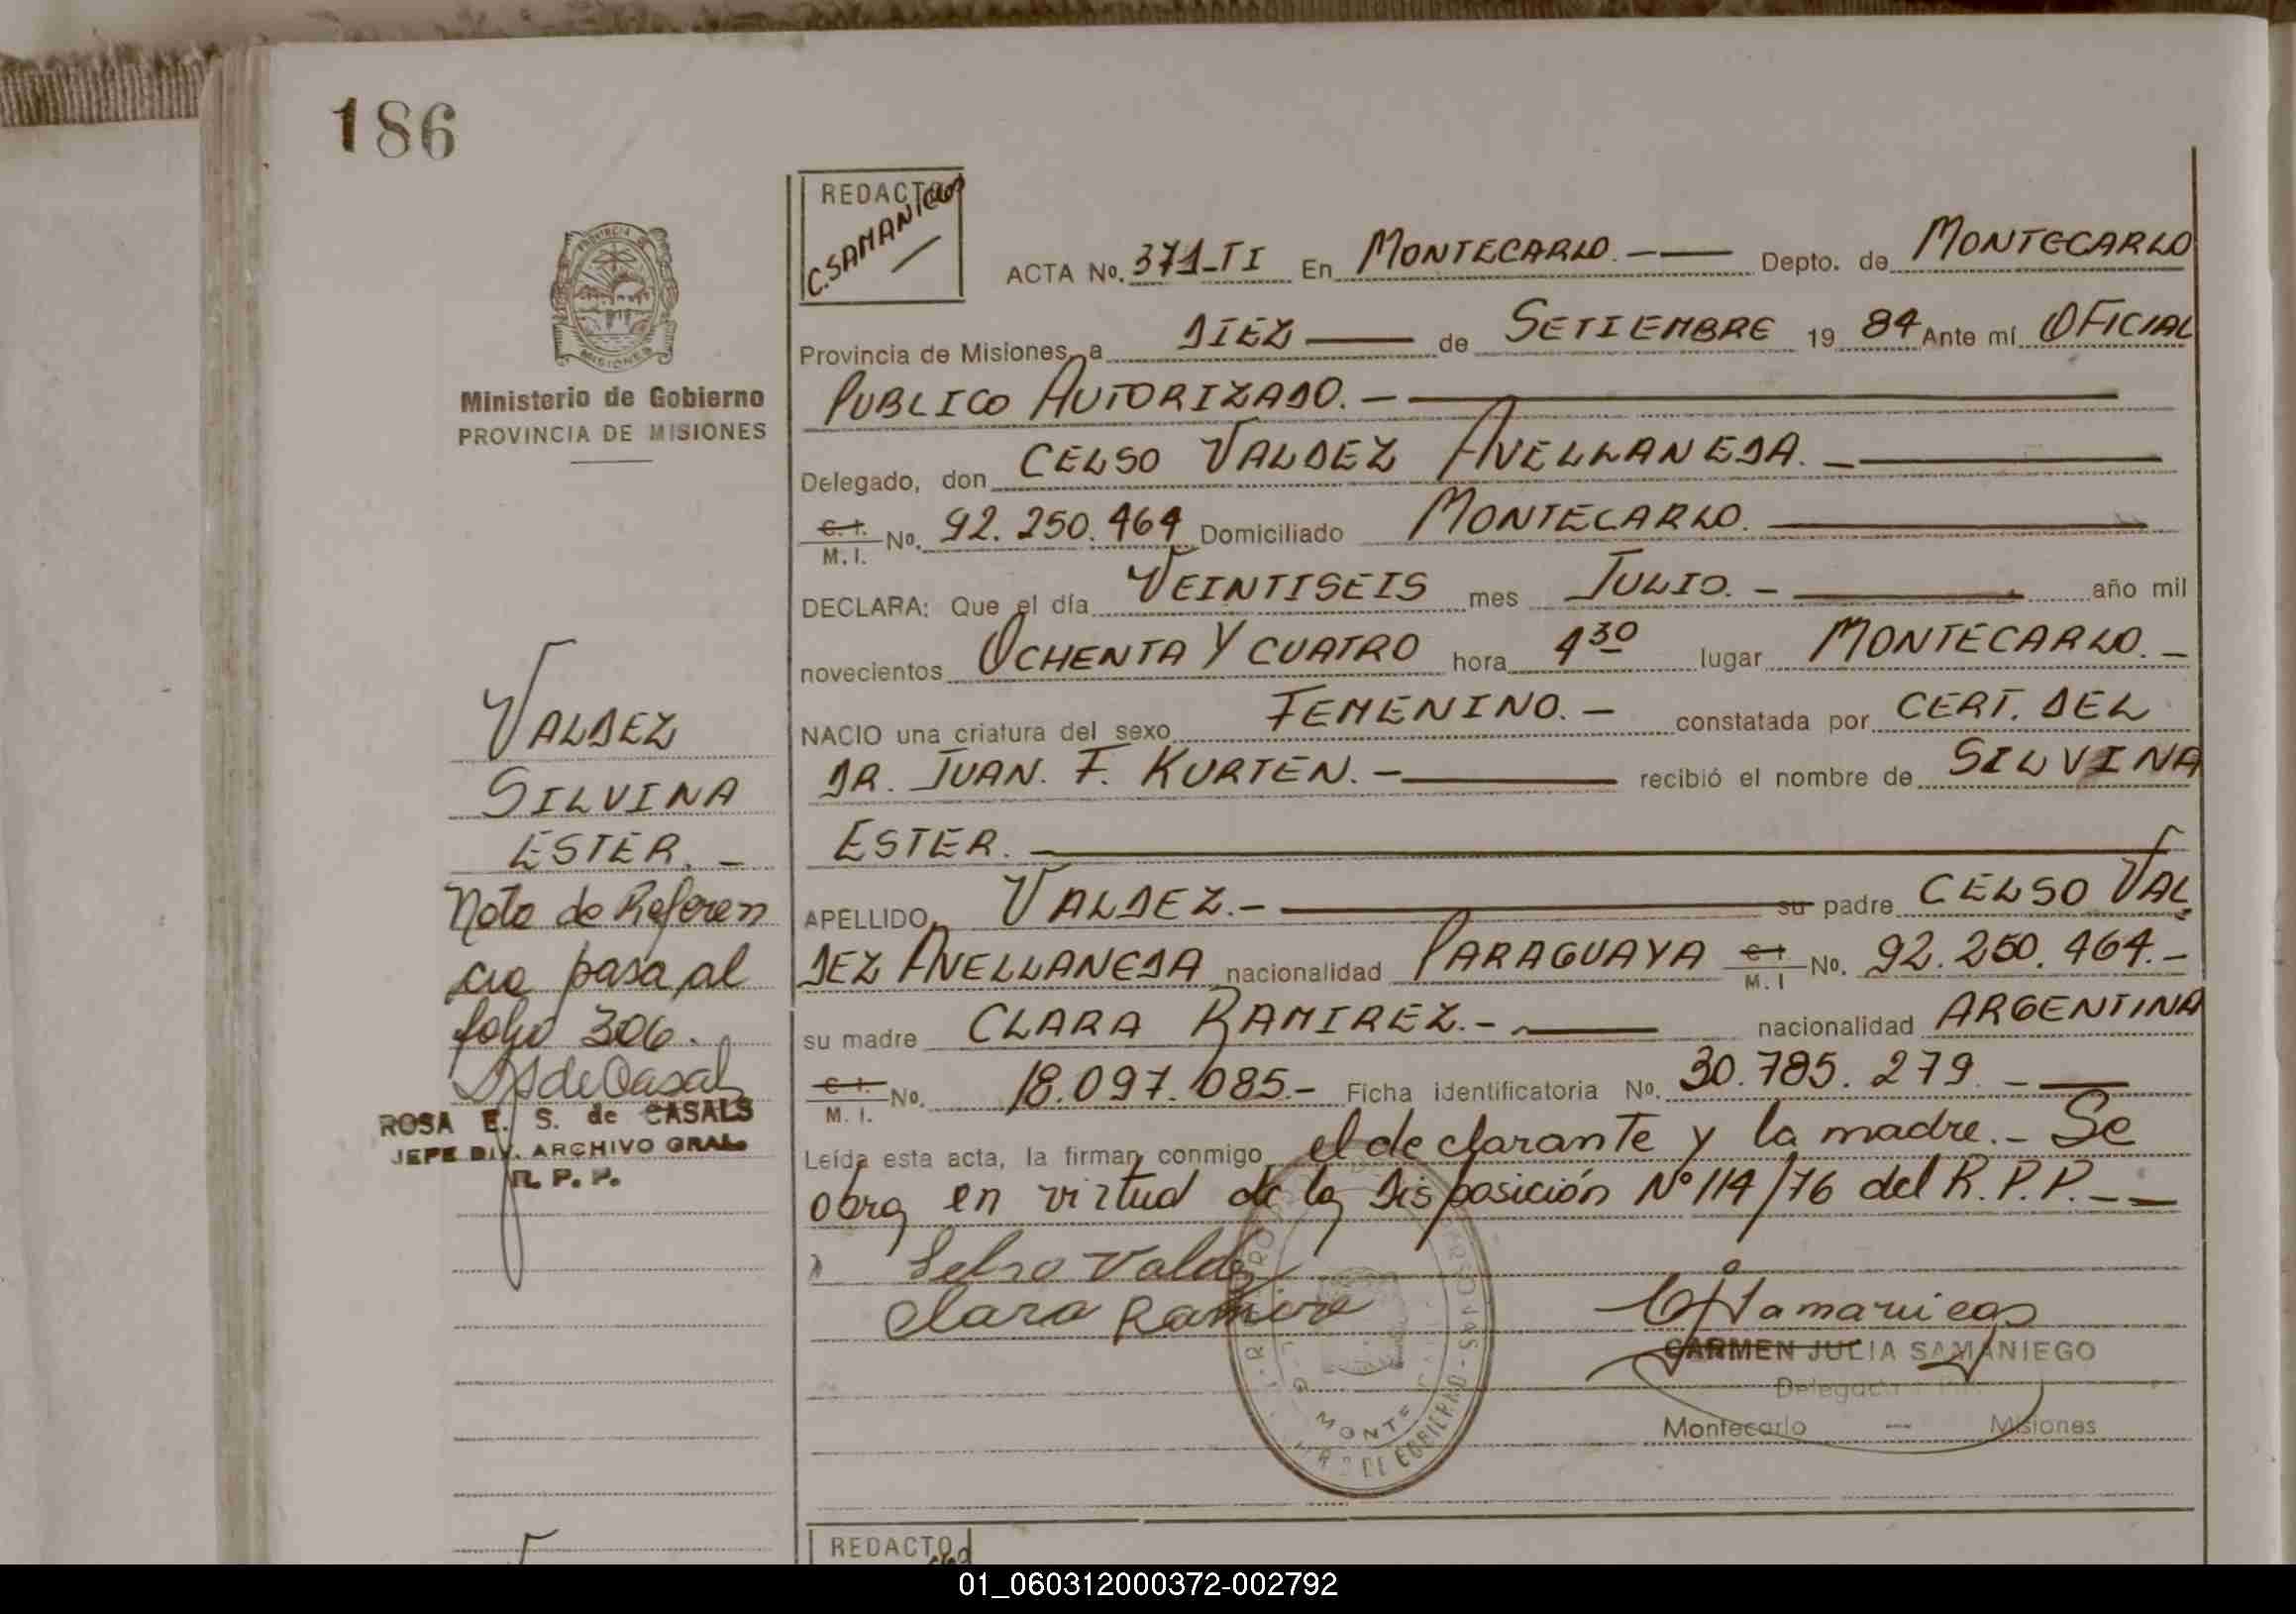 186
REDACTO
C. SAMANIEGO
ACTA No. 371-TI En MONTECARLO.- Depto. de MONTECARLO
Provincia de Misiones, a DIEZ de SETIEMBRE 19 84 Ante mí OFICIAL
PUBLICO AUTORIZADO.-
Delegado, don CELSO VALDEZ AVELLANEDA.-
C. I. M. I. No. 92.250.464 Domiciliado MONTECARLO.
DECLARA: Que el día VEINTISEIS mes JULIO.- año mil
novecientos OCHENTA Y CUATRO hora 4 30 lugar MONTECARLO.-
NACIO una criatura del sexo FEMENINO.- constatada por CERT. DEL
DR. JUAN. F. KURTEN.- recibió el nombre de SILVINA
ESTER.-
APELLIDO, VALDEZ.- su padre CELSO VAL
DEZ AVELLANEDA nacionalidad PARAGUAYA C. I. M. I No. 92.250.464.-
su madre CLARA RAMIREZ.- nacionalidad ARGENTINA
C. I. M. I. No. 18.097.085.- Ficha identificatoria No. 30.785.279.-
Leída esta acta, la firman conmigo el declarante y la madre.- Se
obra en virtud de la Disposición Nº 114/76 del R.P.P.-
Celso Valdez
Clara Ramire
CARMEN JULIA SAMANIEGO
Montecarlo - Misiones
PROVINCIA DE
MISIONES
Ministerio de Gobierno
PROVINCIA DE MISIONES
VALDEZ
SILVINA
ESTER.-
Nota de Referen
cia pasa al
folio 306.
ROSA E. S. de CASALS
JEFE DIV. ARCHIVO GRAL.
R. P. P.
REDACTO
01_060312000372-002792